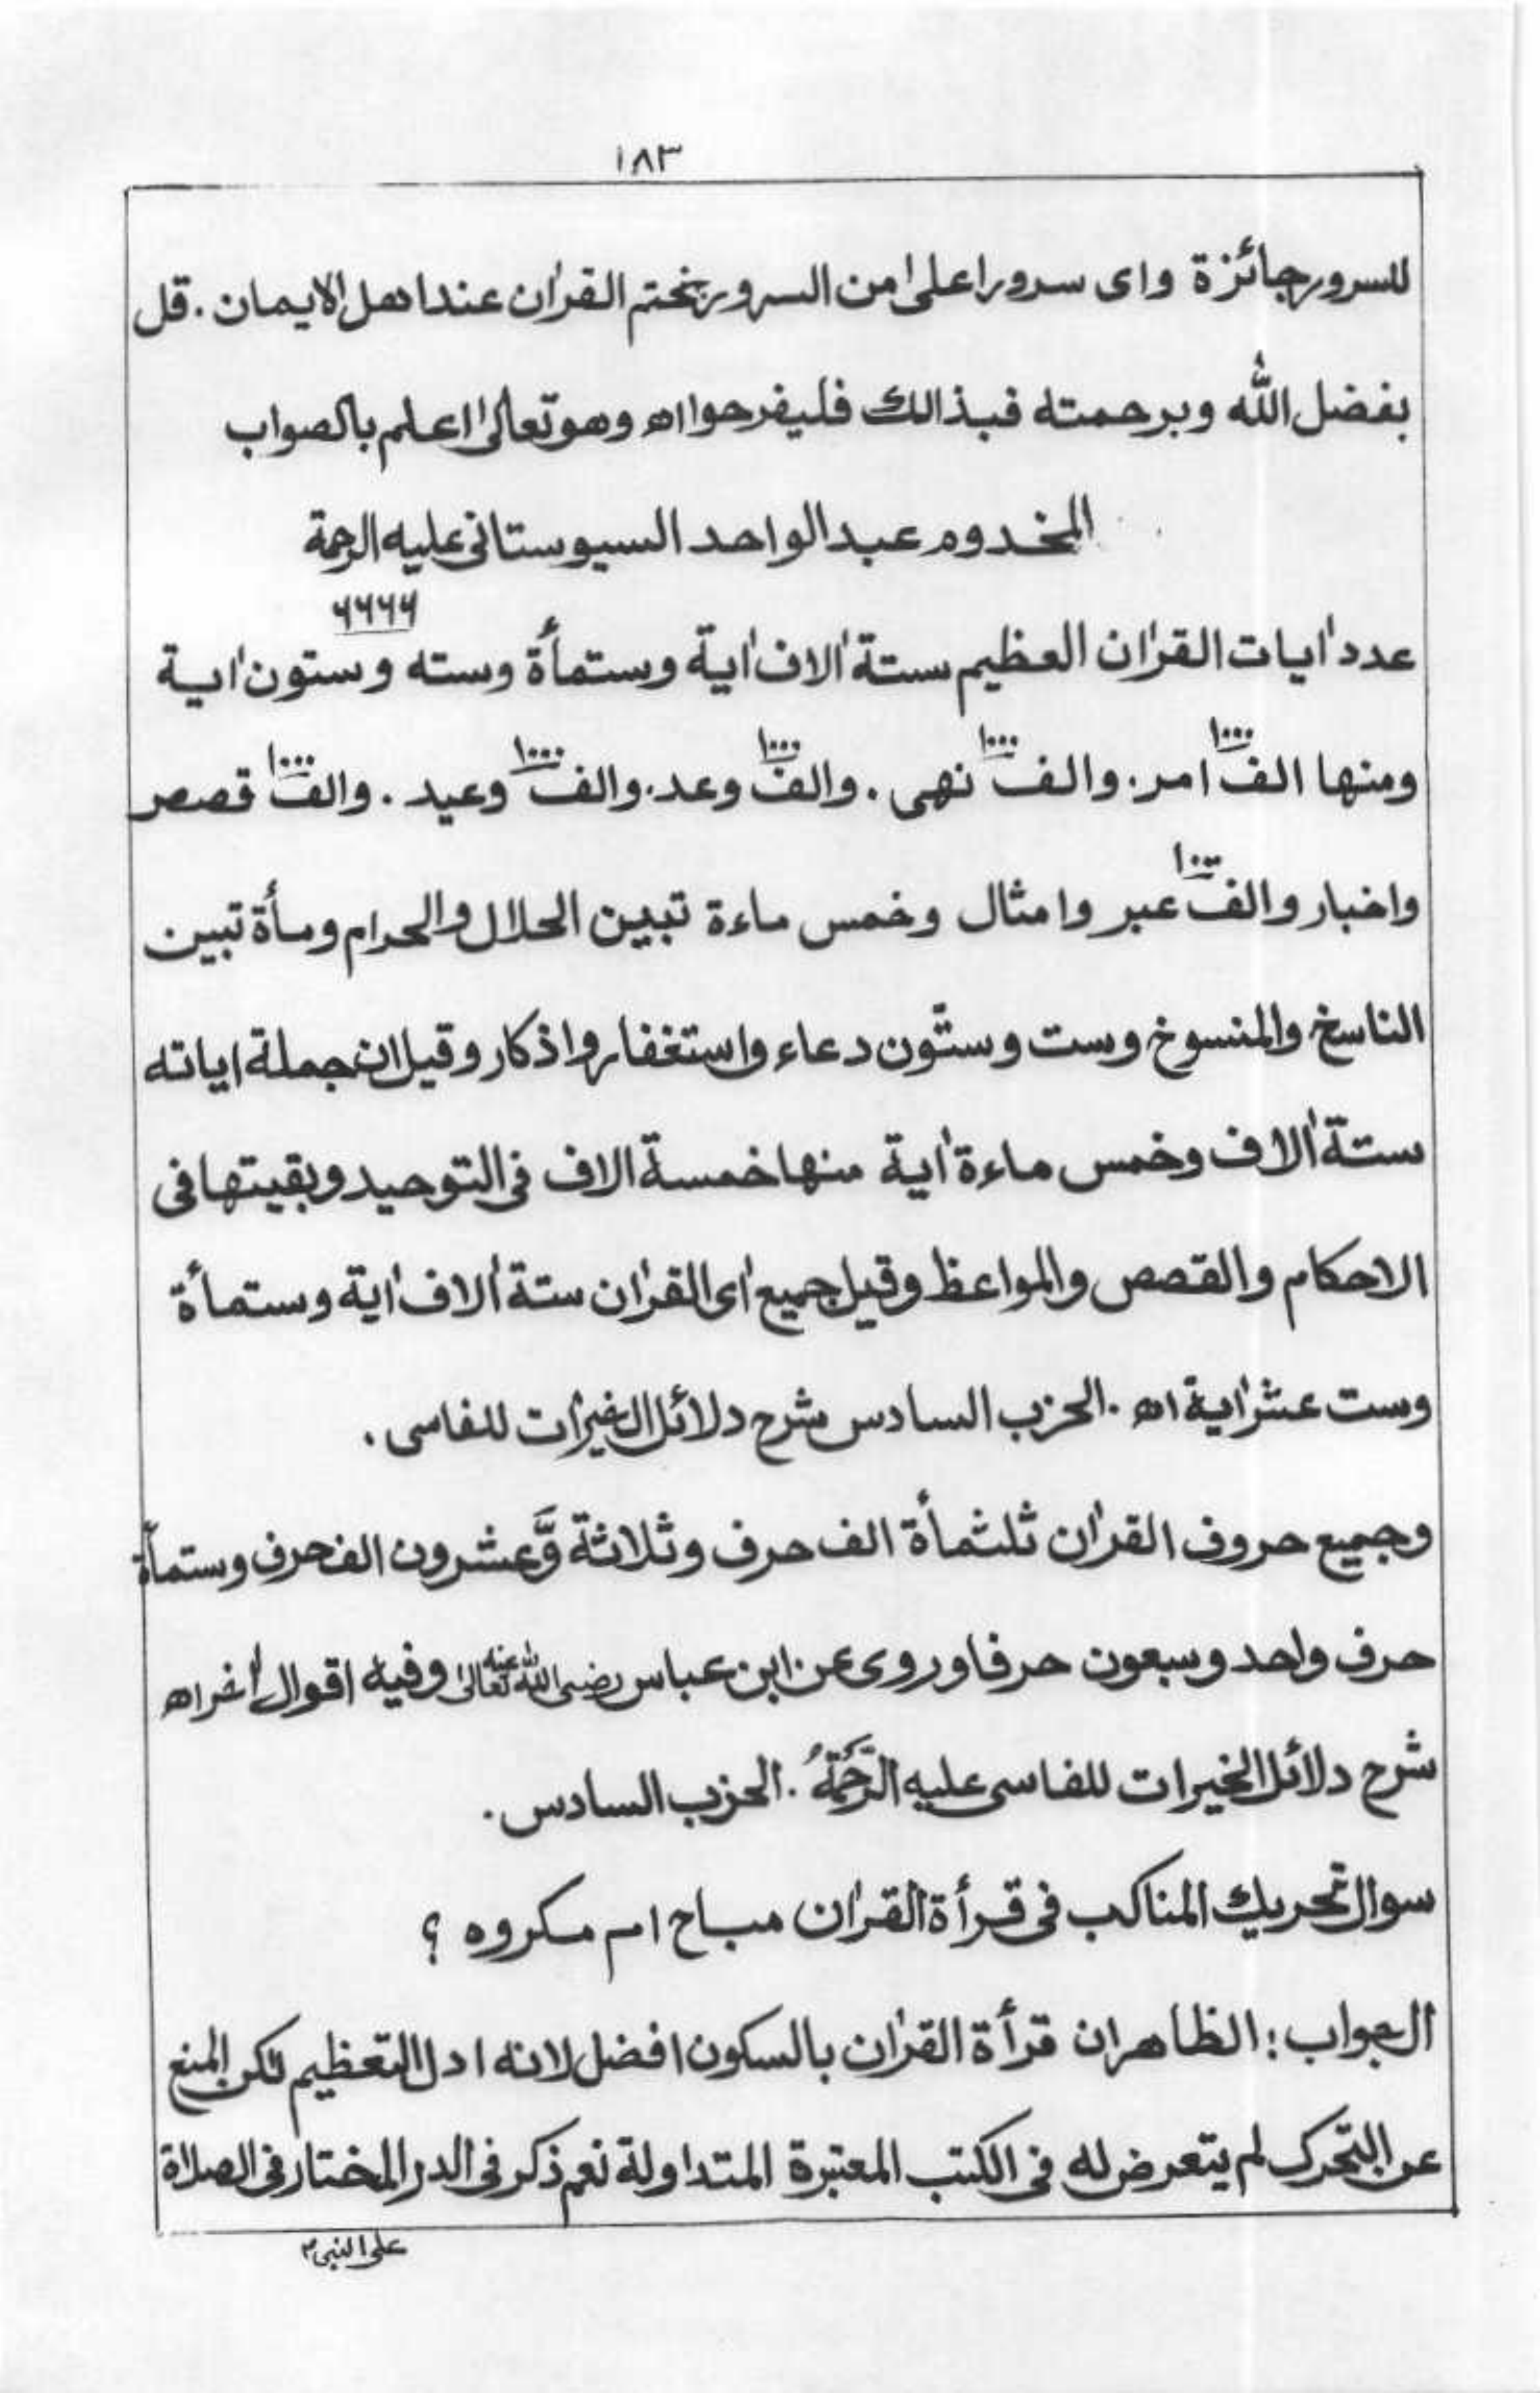 ١٨٣
للسرور جائزة وای سرورا علىٰ من السرور بختم القرٰان عند اهل الايمان . قل
بفضل اللّٰه وبرحمته فبذالك فليفرحوا اه وهو تعالىٰ اعلم بالصواب
المخدوم عبد الواحد السيوستانی عليه الرحمة
٦٦٦٦
عدد اٰيات القرٰان العظيم ستة اٰلاف اٰية وستمأة وسته وستون اٰية
١٠٠٠ ١٠٠٠ ١٠٠٠ ١٠٠٠ ١٠٠٠
ومنها الف امر . والف نهی . والف وعد . والف وعيد . والف قصص
١٠٠٠
واخبار والف عبر وامثال وخمس ماءة تبيين الحلال والحرام ومأة تبين
الناسخ والمنسوخ وست وستّون دعاء واستغفار واذكار وقيل ان جملة اياته
ستة اٰلاف وخمس ماءة اٰية منها خمسة الاف فی التوحيد وبقيتها فی
الاحكام والقصص والمواعظ وقيل جميع اٰی القرٰان ستة اٰلاف اٰية وستمأة
وست عشر اٰية اه . الحزب السادس شرح دلائل الخيرات للفاسی .
وجميع حروف القرٰان ثلثمأة الف حرف وثلاثة وَّعشرون الف حرف وستمأة
حرف واحد وسبعون حرفا وروی عن ابن عباس رضی اللّٰه تعالىٰ عنه وفيه اقوال اٰخر اه
شرح دلائل الخيرات للفاسی عليه الرَّحْمَةُ . الحزب السادس .
سوال تحريك المناكب فی قرأة القرٰان مباح ام مكروه ؟
الجواب : الظاهر ان قرأة القرٰان بالسكون افضل لانه ادل التعظيم لكن المنع
عن التحرك لم يتعرض له فی الكتب المعتبرة المتداولة نعم ذكر فی الدر المختار فی الصلاة
علی النبی